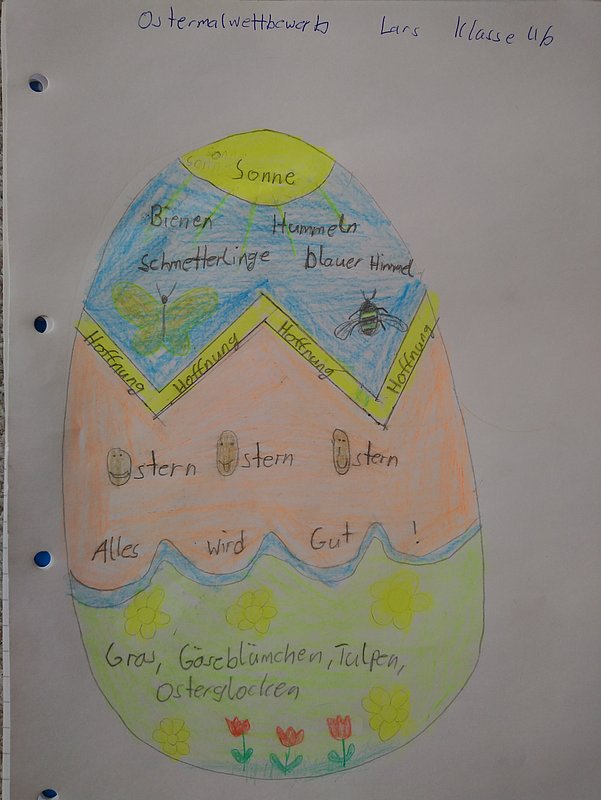 Ostermalwettbewerb Lars Klasse 4b
Sonne
Bienen Hummeln
Schmetterlinge blauer Himmel
Hoffnung Hoffnung Hoffnung Hoffnung
Ostern Ostern Ostern
Alles wird Gut !
Gras, Gäseblümchen, Tulpen,
Osterglocken